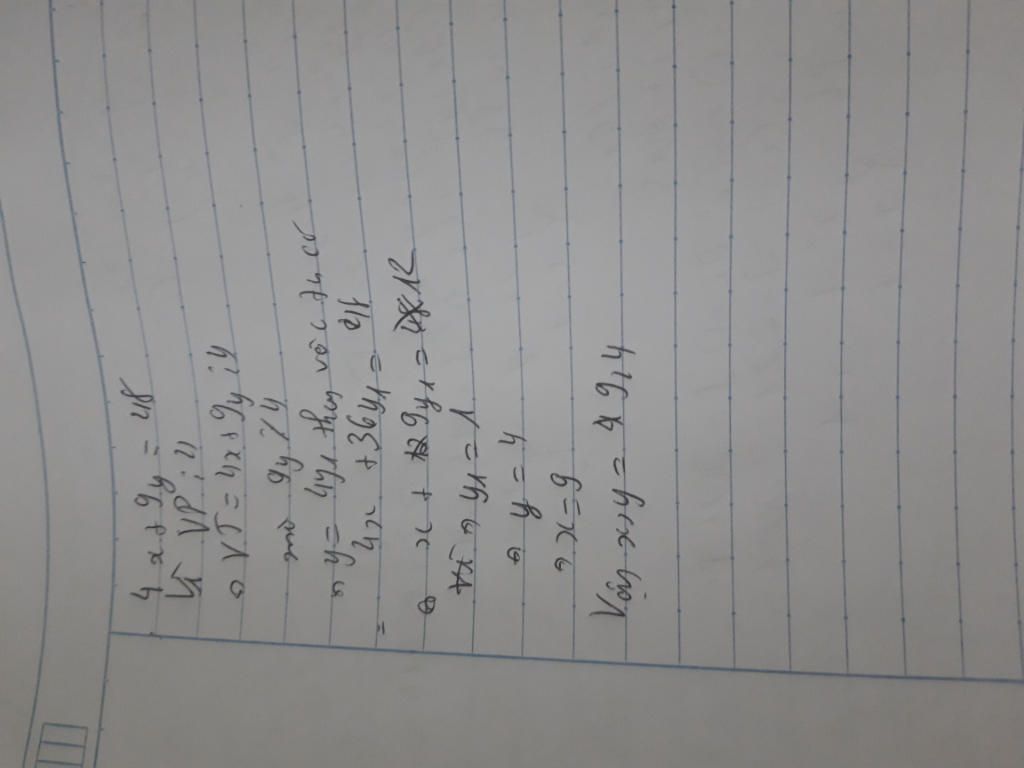 4x + 9y = 48
Vì VP ⋮ 4
⇒ VT = 4x + 9y ⋮ 4
mà 9y ⋮ 4
⇒ y = 4y₁ thay vào ta có
4x + 36y₁ = 48
⇔ x + 9y₁ = 12
⇒ y₁ = 1
⇒ y = 4
⇒ x = 9
Vậy x, y = 9, 4